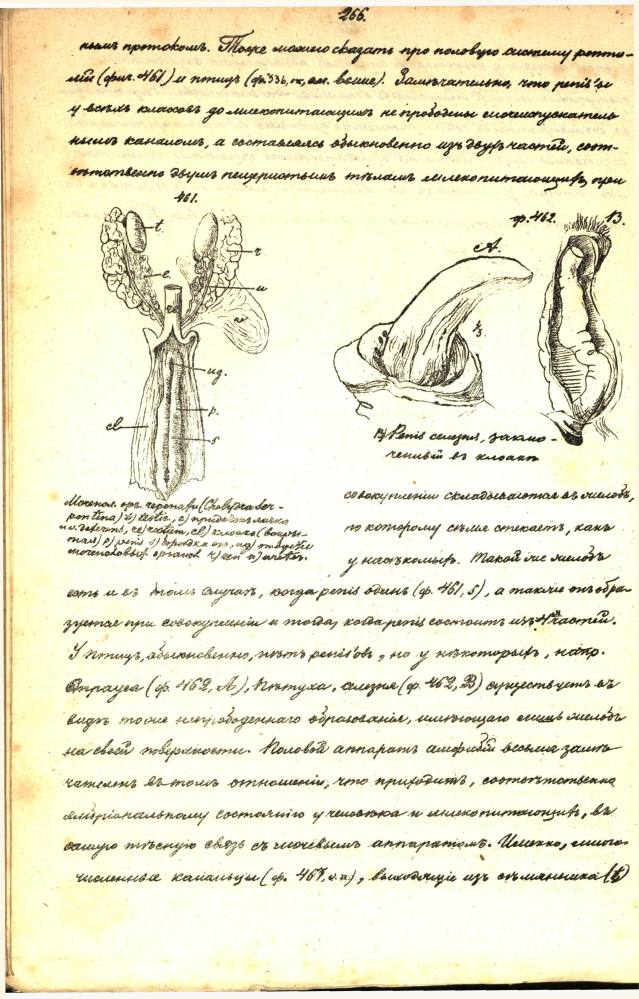 266.
нымъ протокомъ. Тоже можно сказать про половую систему репти-
лій (фиг. 461) и птицъ (ф. 336, см. выше). Замѣчательно, что penis'ы
у всѣхъ классовъ до млекопитающихъ не прободены мочеиспускатель
нымъ каналомъ, а составляясь обыкновенно изъ двухъ частей, соот-
вѣтственно двумъ пещеристымъ тѣламъ млекопитающихъ, при
461.
t.
r.
e.
u
v
rc
ug.
p.
s
cl
ф. 462.
A.
B.
⅓.
B) Penis селезня, заклю-
ченный въ клоакѣ
Мочепол. орг. черепахи (Chelydra ser-
pentina) t) testis, e) придатокъ яичка
v. deferens, rc) rectum, cl) клоака (вскры-
тая) p) penis s) бороздка его, ug) отверстіе
мочеполовыхъ органовъ r) ren u) ureter.
совокупленіи складываются въ жолобъ,
по которому сѣмя стекаетъ, какъ
у насѣкомыхъ. Такой же жолобъ
есть и въ томъ случаѣ, когда penis одинъ (ф. 461, s), а также онъ обра-
зуется при совокупленіи и тогда, когда penis состоитъ изъ частей.
У птицъ, обыкновенно, нѣтъ penis'овъ, но у нѣкоторыхъ, напр.
Страуса (ф. 462, A), Пѣтуха, селезня (ф. 462, B) существуетъ въ
видѣ тоже непрободеннаго образованія, имѣющаго лишь жолобъ
на своей поверхности. Половой аппаратъ амфибій весьма замѣ
чателенъ въ томъ отношеніи, что приходитъ, соотвѣтственно
эмбріональному состоянію у человѣка и млекопитающихъ, въ
самую тѣсную связь съ мочевымъ аппаратомъ. Именно, много-
численные канальцы (ф. 467), выходящіе изъ сѣмянника (t)